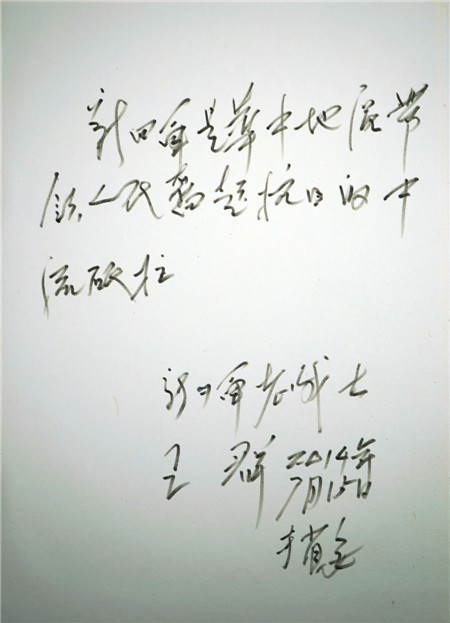 新四军是华中地区带
领人民奋起抗日的中
流砥柱
新四军老战士
王群 2014年
7月15日